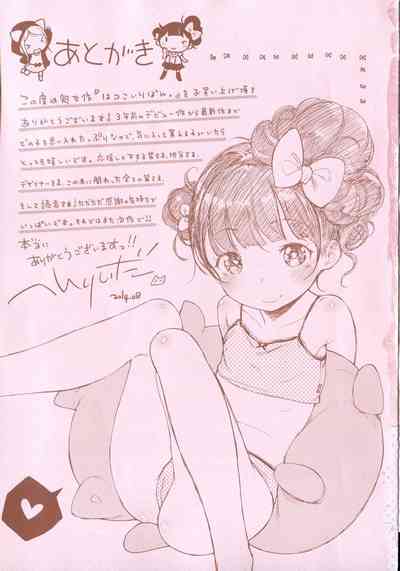 あとがき
この度は処女作『はつこいりぼん。』をお買い上げ頂き
ありがとうございます♪3年前のデビュー作から最新作まで
どの子も思い入れたっぷりなので、気に入って貰える子がいたら
とっても嬉しいです。応援して下さる皆さま、担当さま、
デザイナーさま、この本に関わった全ての皆さま、
そして読者さま!ただただ感謝の気持ちで
いっぱいです。それではまた次作で!!
本当に
ありがとうございますっ!!
2014.08